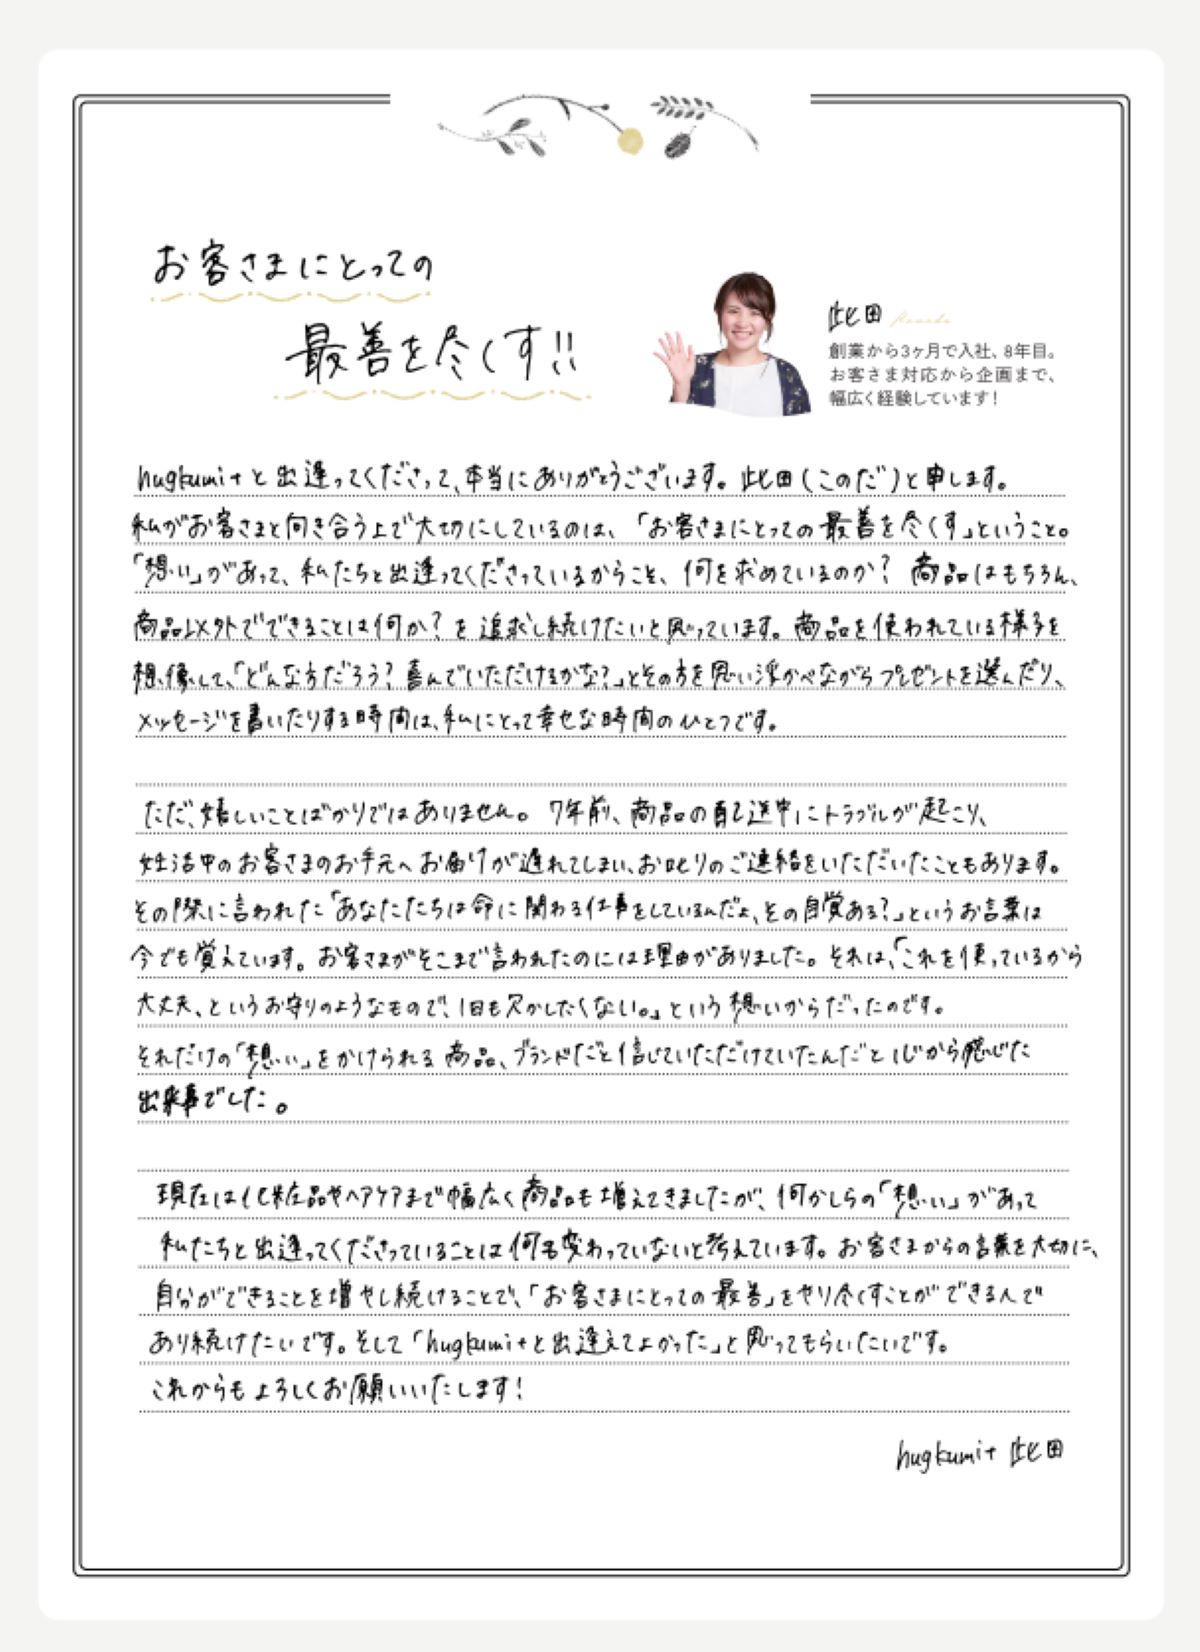 お客さまにとっての
最善を尽くす!!
此田
創業から3ヶ月で入社、8年目。
お客さま対応から企画まで、
幅広く経験しています!
hugkumi+と出逢ってくださって、本当にありがとうございます。此田(このだ)と申します。
私がお客さまと向き合う上で大切にしているのは、「お客さまにとっての最善を尽くす」ということ。
「想い」があって、私たちと出逢ってくださっているからこそ、何を求めているのか?商品はもちろん、
商品以外でできることは何か?を追求し続けたいと思っています。商品を使われている様子を
想像して、「どんな方だろう?喜んでいただけるかな?」とその方を思い浮かべながらプレゼントを選んだり、
メッセージを書いたりする時間は、私にとって幸せな時間のひとつです。
ただ、嬉しいことばかりではありません。7年前、商品の配送中にトラブルが起こり、
妊活中のお客さまのお手元へお届けが遅れてしまい、お叱りのご連絡をいただいたこともあります。
その際に言われた「あなたたちは命に関わる仕事をしているんだよ、その自覚ある?」というお言葉は
今でも覚えています。お客さまがそこまで言われたのには理由がありました。それは、「これを使っているから
大丈夫、というお守りのようなもので、1日も欠かしたくない。」という想いからだったのです。
それだけの「想い」をかけられる商品、ブランドだと信じていただけていたんだと心から感じた
出来事でした。
現在は化粧品やヘアケアまで幅広く商品も増えてきましたが、何かしらの「想い」があって
私たちと出逢ってくださっていることは何も変わっていないと考えています。お客さまからの言葉を大切に、
自分ができることを増やし続けることで、「お客さまにとっての最善」をやり尽くすことができる人で
あり続けたいです。そして「hugkumi+と出逢えてよかった」と思ってもらいたいです。
これからもよろしくお願いいたします!
hugkumi+ 此田